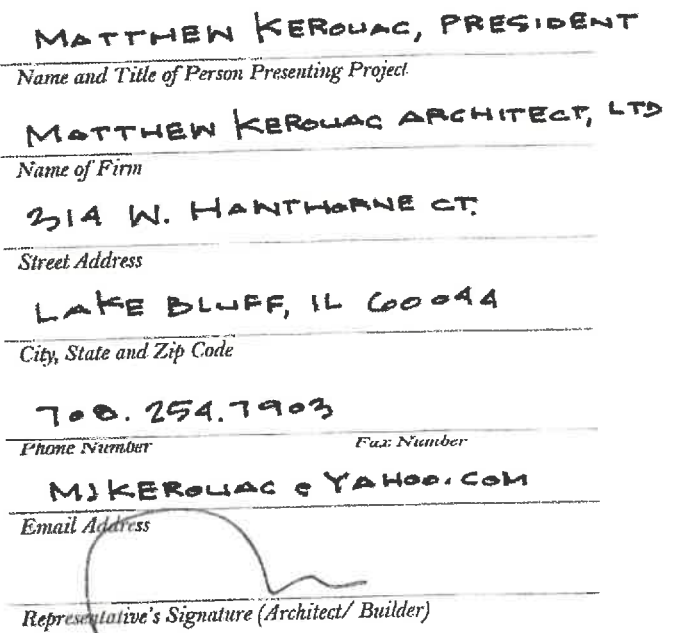 MATTHEW KEROUAC, PRESIDENT
Name and Title of Person Presenting Project
MATTHEW KEROUAC ARCHITECT, LTD
Name of Firm
314 W. HAWTHORNE CT.
Street Address
LAKE BLUFF, IL 60044
City, State and Zip Code
708.254.7903
Phone Number Fax Number
MJKEROUAC @ YAHOO.COM
Email Address
Representative's Signature (Architect/ Builder)